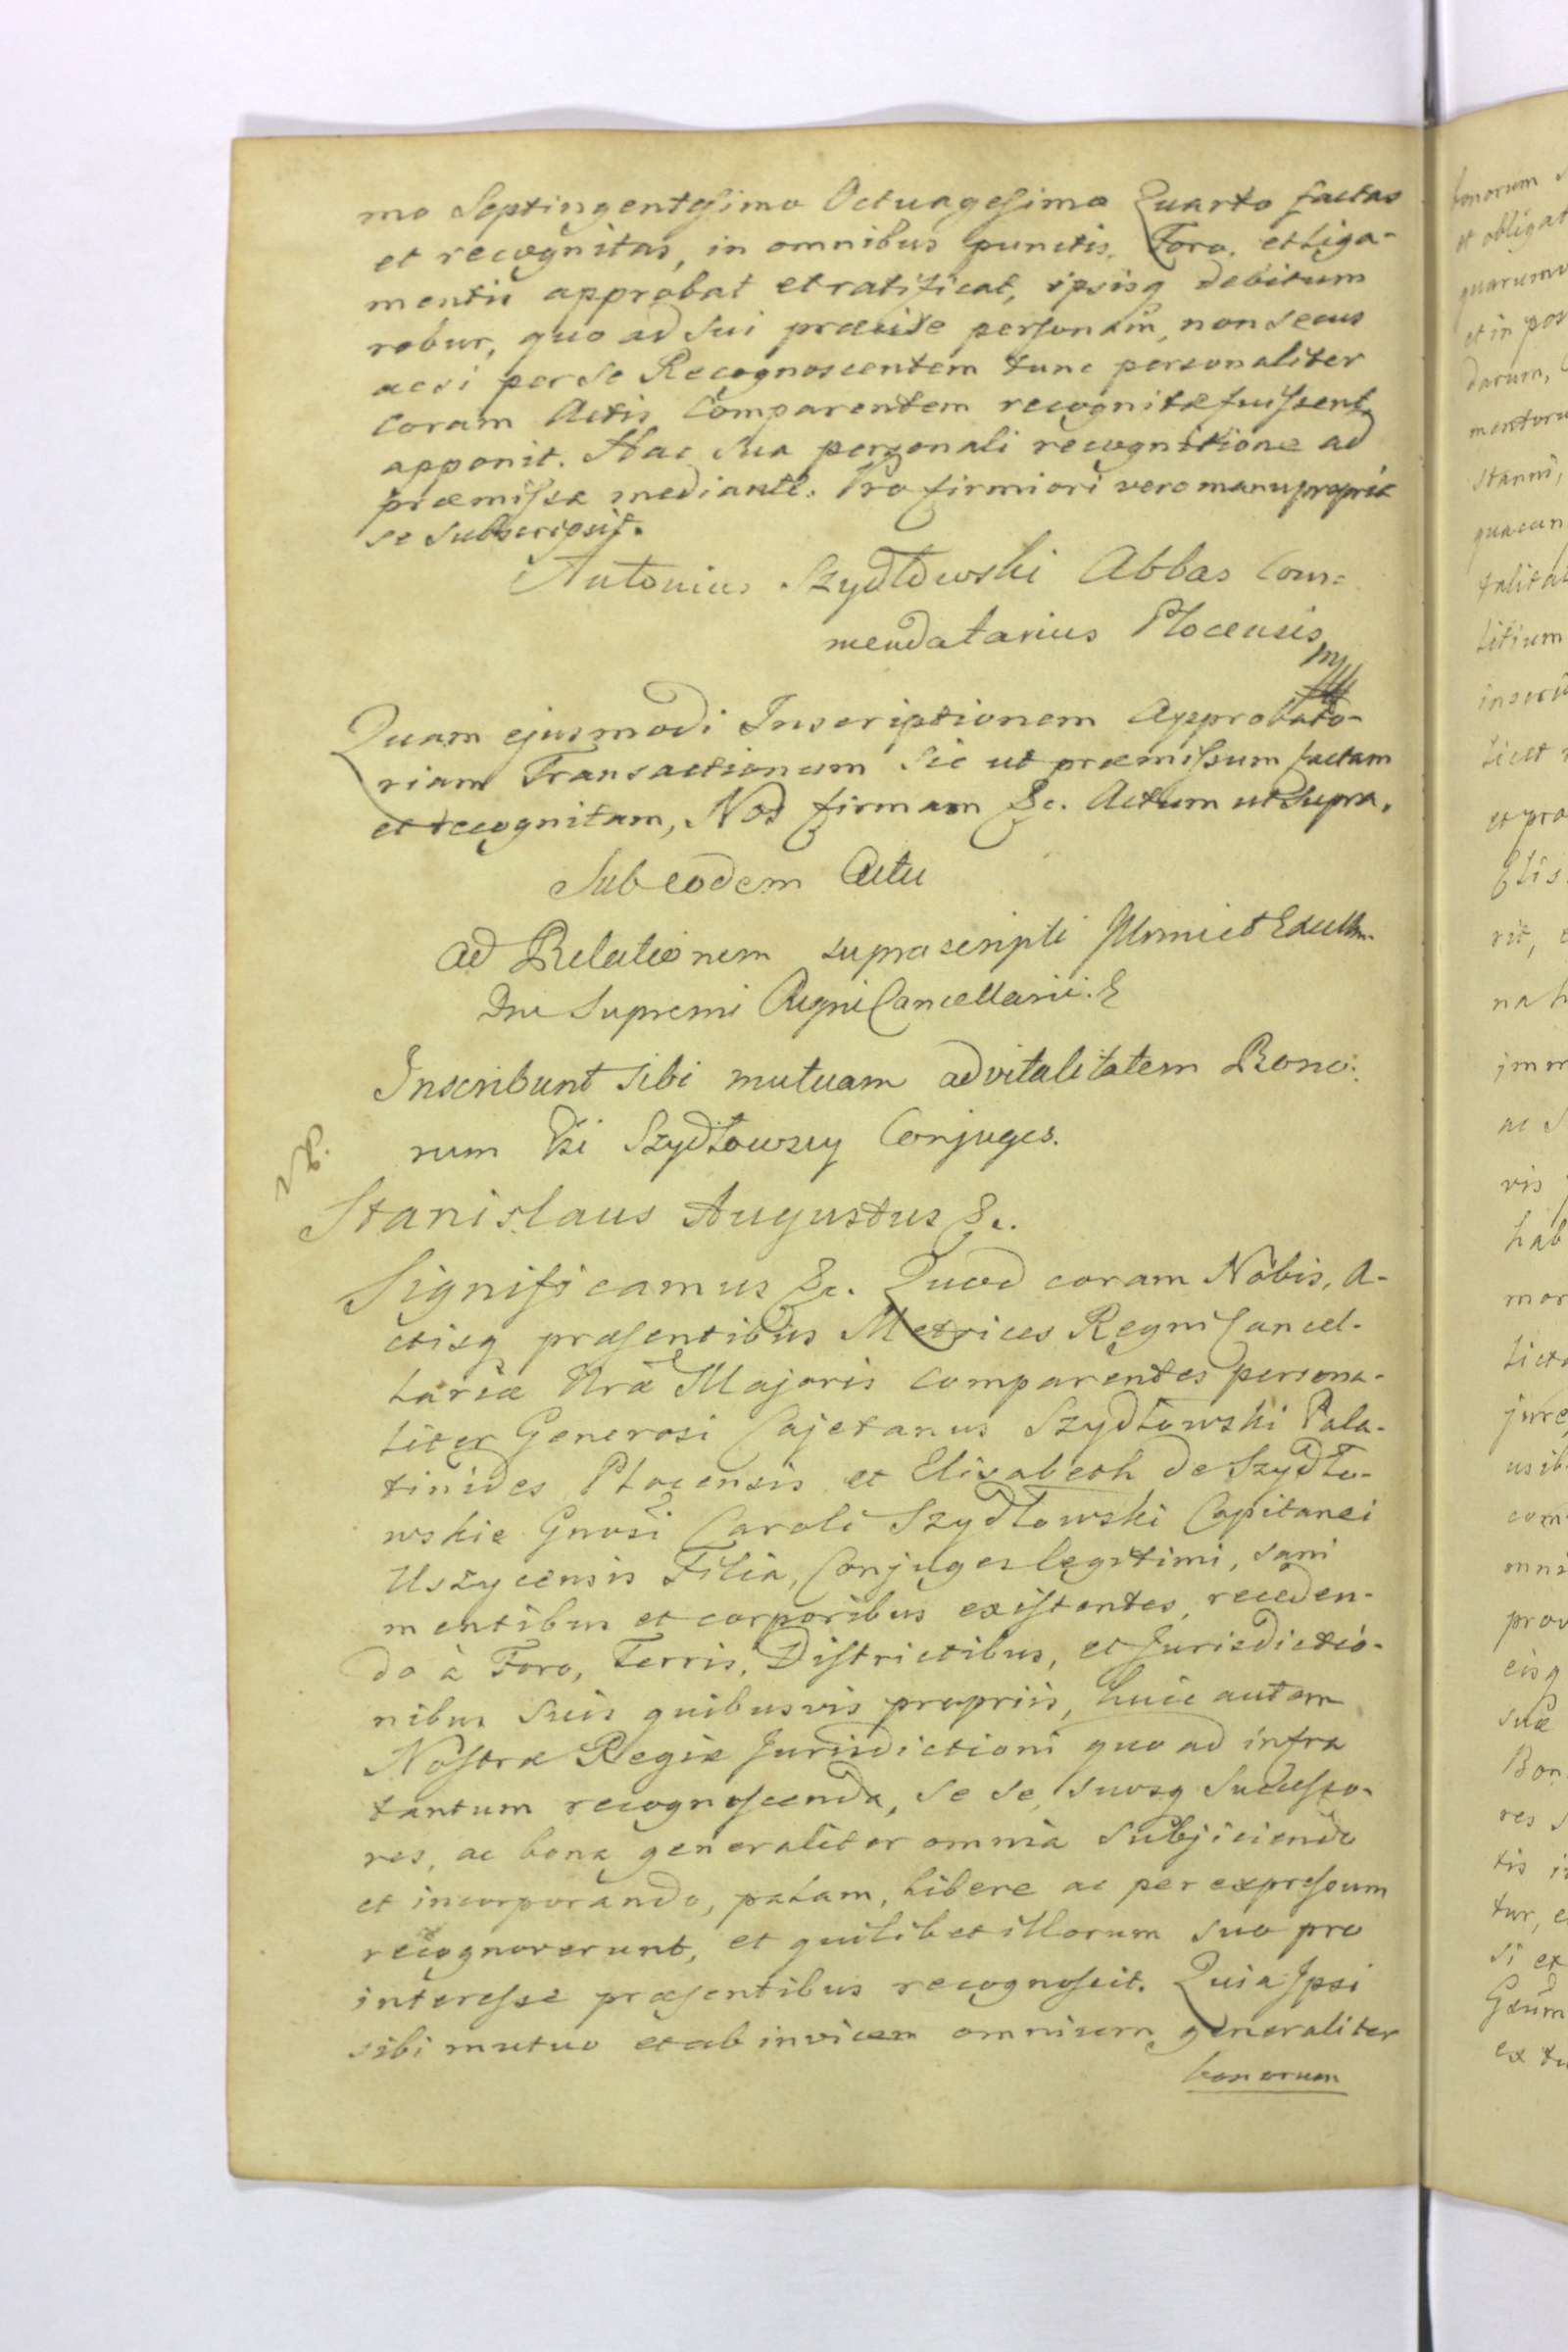 mo Septingentesimo Octuagesimo Quarto factas
et recognitas, in omnibus punctis, Foro, et Liga-
mentis approbat et ratificat, ipsisq debitum
robur, quo ad sui præcise personam, non secus
acsi per se Recognoscentem tunc personaliter
coram Actis Comparentem recognitæ fuissent,
apponit. Hac sua personali recognitione ad
præmissa mediante. Pro firmiori vero manu propria
se subscripsit.
Antonius Szydłowski Abbas Com=
mendatarius Plocensis
Quam ejusmodi Inscriptionem Approbato-
riam Transactionum sic ut præmissum factam
et recognitam, Nos firmam &c. Actum ut supra.
Sub eodem Actu
Ad Relationem suprascripti Illrmi et Excellm.
Dni Supremi Regni Cancellarii.
Inscribunt sibi mutuam advitalitatem Bono:
rum Gsi Szydłowscy Conjuges.
NB.
Stanislaus Augustus &c.
Significamus &c. Quod coram Nobis, A-
ctisq præsentibus Metrices Regni Cancel-
lariæ Nræ Majoris comparentes persona-
liter Generosi Cajetanus Szydłowski Pala-
tinides Plocensis et Elisabeth de Szydło-
wskie Gnosi Caroli Szydłowski Capitanei
Uszycensis Filia, Conjuges legitimi, sani
mentibus et corporibus existentes, receden-
do à Foro, Terris, Districtibus, et Jurisdictio-
nibus suis quibusvis propriis, huic autem
Nostræ Regiæ Jurisdictioni quo ad infra
tantum recognoscenda, se se, suosq Successo-
res, ac bona generaliter omnia subjiciendo
et incorporando, palam, libere ac per expressum
recognoverunt, et quilibet illorum suo pro
interesse præsentibus recognoscit. Quia Ipsi
sibi mutuo et ab invicem omnium generaliter
bonorum
bonorum
et obligat
quarumv
et in pos
darum,
mentoru
stanni,
quacun
talitat
litium
et pro
Elis
rit,
na h
imm
ac s
vis
hab
mor
jure
usib
com
omni
prov
eisq
suæ
Bon
res s
tis i
tur, e
si ex
ex tu